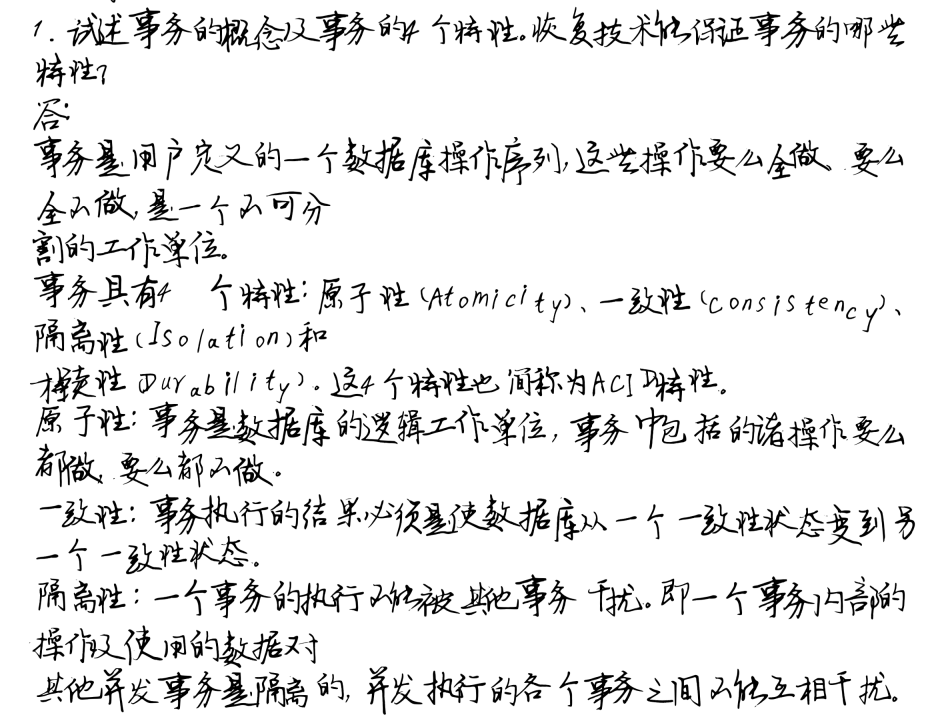 1. 试述事务的概念及事务的4个特性。恢复技术能保证事务的哪些
特性?
答:
事务是用户定义的一个数据库操作序列,这些操作要么全做、要么
全不做,是一个不可分
割的工作单位。
事务具有4 个特性:原子性(Atomicity)、一致性(consistency)、
隔离性(Isolation)和
持续性(Durability)。这4个特性也简称为ACID特性。
原子性:事务是数据库的逻辑工作单位,事务中包括的诸操作要么
都做、要么都不做。
一致性:事务执行的结果必须是使数据库从一个一致性状态变到另
一个一致性状态。
隔离性:一个事务的执行不能被其他事务干扰。即一个事务内部的
操作及使用的数据对
其他并发事务是隔离的,并发执行的各个事务之间不能互相干扰。